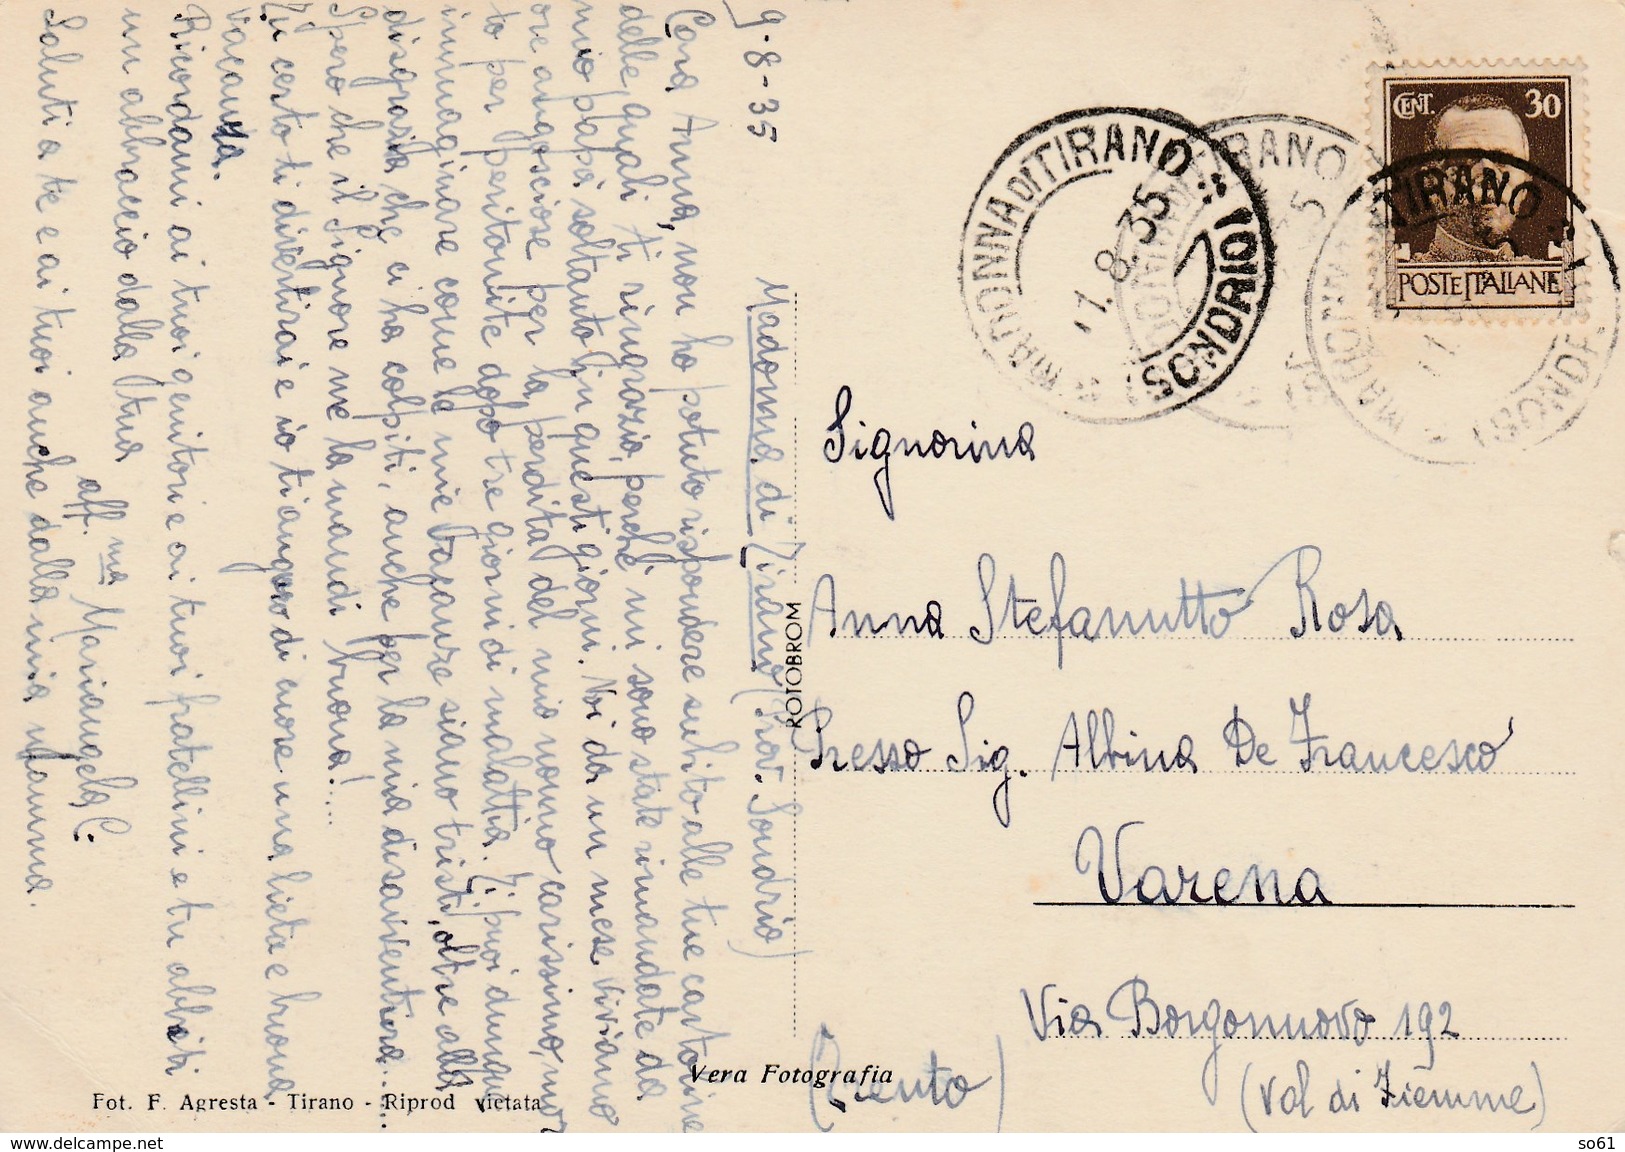 9-8-35
Madonna di Tirano (Prov. Sondrio)
Cara Anna, non ho potuto rispondere subito alle tue cartoline
delle quali ti ringrazio, perchè mi sono state rimandate da
mio papà soltanto in questi giorni. Noi da un mese viviamo
ore angosciose per la perdita del mio nonno carissimo, mor
to per peritonite dopo tre giorni di malattia. Ti puoi dunque
immaginare come le mie vacanze siano tristi, oltre alla
disgrazia che ci ha colpiti, anche per la mia disavventura....
Spero che il Signore me la mandi buona!...
Tu certo ti divertirai e io ti auguro di cuore una lieta e buona
vacanza.
Ricordami ai tuoi genitori e ai tuoi fratellini e tu abbiti
un abbraccio dalla tua
aff.ma Mariangela C.
Saluti a te e ai tuoi anche dalla mia mamma.
Fot. F. Agresta - Tirano - Riprod vietata
Vera Fotografia
ROTOBROM
MADONNA DI TIRANO
(SONDRIO)
8.35
TIRANO
CENT. 30
POSTE ITALIANE
Signorina
Anna Stefanutto Rosa
Presso Sig. Albina De Francesco
Varena
Via Borgonuovo 192
(Val di Fiemme)
(Trento)
so61